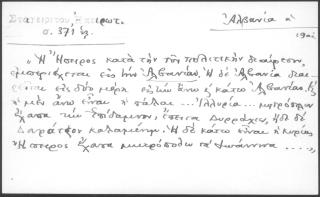 Σταγειρίτου, Ἠπειρωτ.
σ. 371 ἑξ.
Ἀλβανία α
"Ἡ Ἤπειρος κατὰ τὴν νῦν πολιτικὴν διαίρεσιν,
ἐμπεριέχεται εἰς τὴν Ἀλβανίαν. Ἡ δὲ Ἀλβανία διαι-
ρεῖται εἰς δύο μέρη εἰς τὴν ἄνω κ κάτω Ἀλβανίαν. Κ
ἡ μὲν ἄνω εἶναι ἡ πάλαι ... Ἰλλυρία ... μητρόπολιν
ἔχουσα τὴν Ἐπίδαμνον, ἔπειτα Δυρράχιον, ἤδη δὲ
Δουράτζον καλουμένην. Ἡ δὲ κάτω εἶναι ἡ κυρίως
Ἤπειρος ἔχουσα μητρόπολιν τὰ Ἰωάννινα ....,